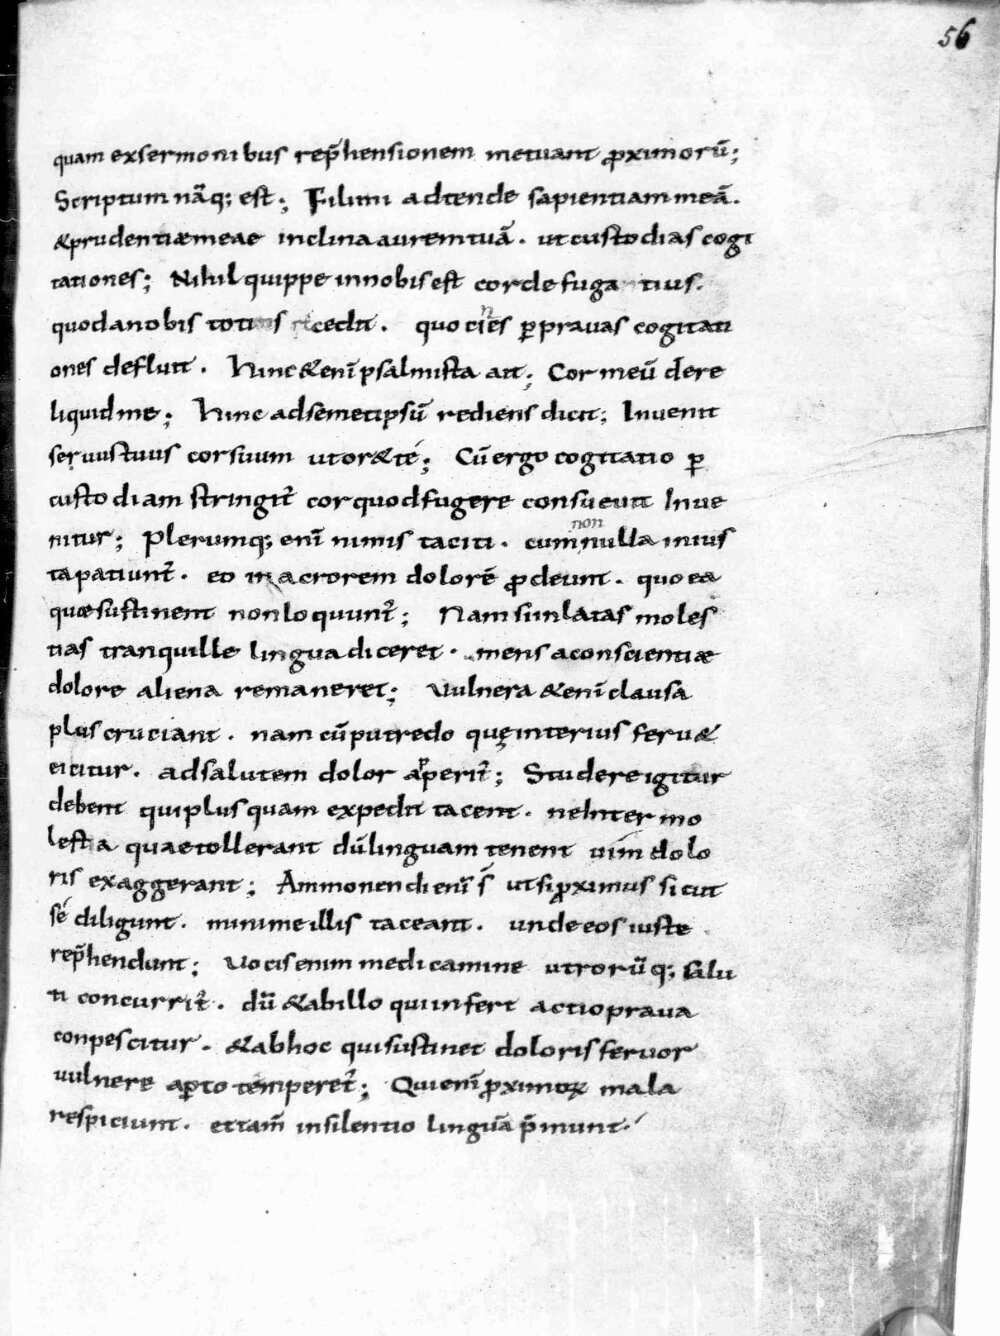 56
quam exsermonibus rep̄hensionem metuant p̄ximorū;
Scriptum nāq; est; Filimi adtende sapientiam meā.
&prudentiæmeae inclinaauremtuā. utcustodias cogi
tationes; Nihil quippe innobisest corde fuga tius.
quodanobis toti s cedit. quociens p̱ prauas cogitati
ones defluit. Hinc &enī psalmista ait; Cor meū dere
liquid me; Hinc adsemetipsū rediens dicit; Inuenit
seruustuus corsuum utor&té; Cū ergo cogitatio p̱
custodiam stringit̄ corquodfugere consueuit Inue
nitur; Plerumq; enī nimis taciti. cum non nulla inius
ta patiunt̄. eo in acrorem dolorē p̄deunt. quo ea
quæ sustinent nonloquunt̄; Nam si inlatas moles
tias tranquille lingua diceret. mens aconscientiæ
dolore aliena remaneret; Vulnera &enī clausa
plus cruciant. nam cū putredo quę interius feru&
eicitur. adsalutem dolor ap̱erit̄; Studere igitur
debent qui plus quam expedit tacent. neInter mo
lestia quae tollerant dū linguam tenent uim dolo
ris exaggerant; Ammonendi enī s̄ utsi p̄ximus sicut
sé diligunt. minime illis taceant. unde eos iuste
rep̄hendunt; Uocis enim medicamine utrorūq; salu
ti concurrit̄. dū &abillo qui infert actio praua
conpescitur. &abhoc qui sustinet doloris feruor
uulnere ap̱to temperet̄; Qui enī p̄ximoꝝ mala
respiciunt. et tam̄ insilentio linguā p̄munt.